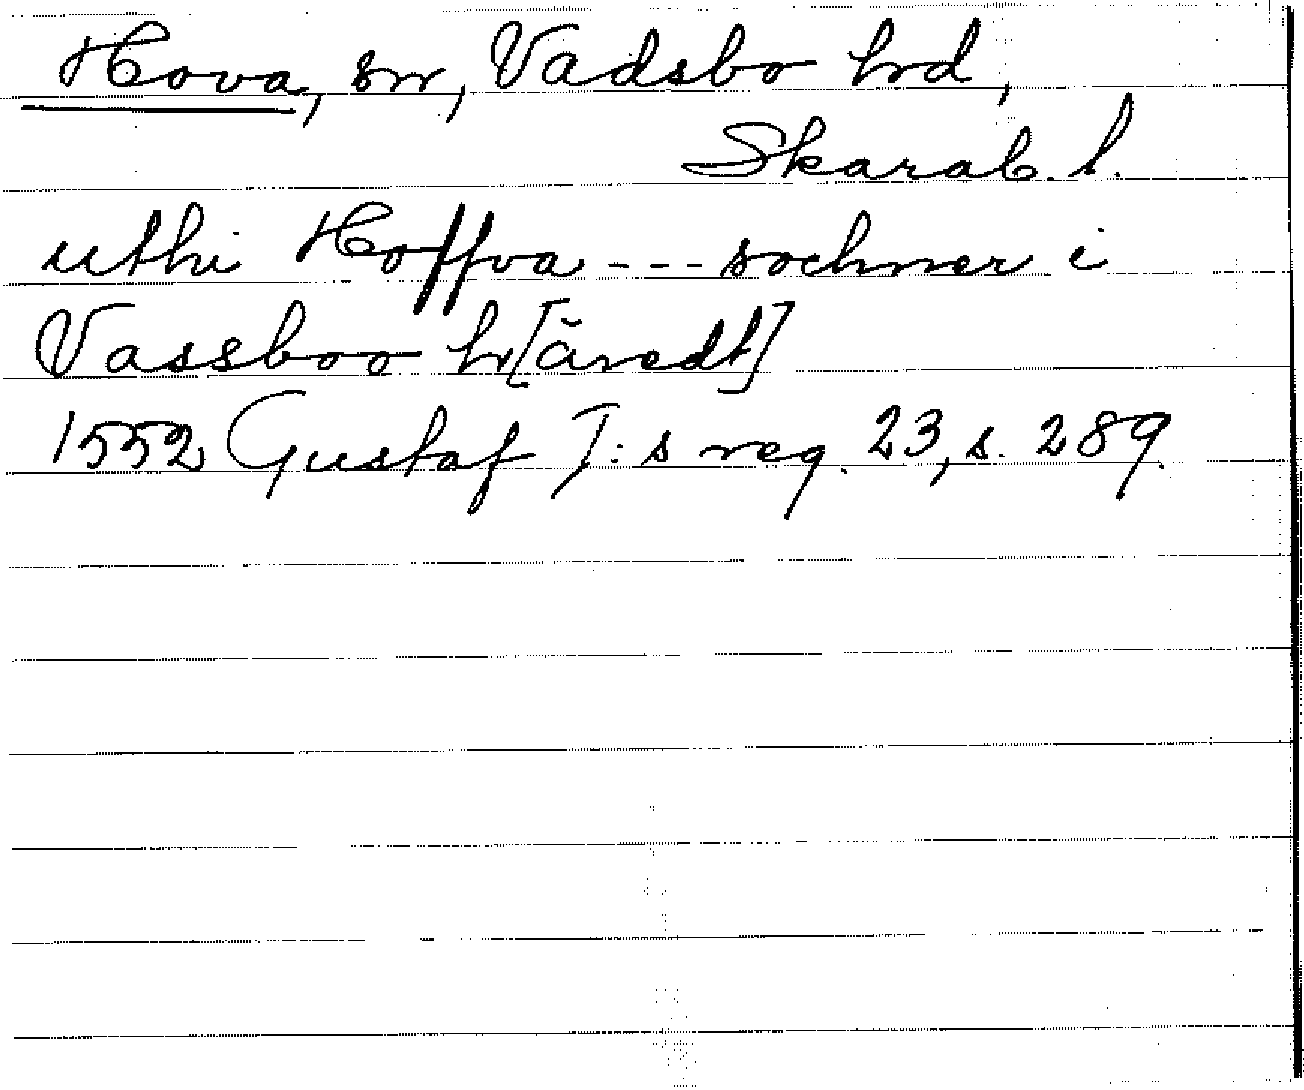 Hova, sn, Vadsbo hd,
Skarab. l.
uthi Hoffva --- sochner i
Vassboo h[äredt]
1552 Gustaf I:s reg. 23, s. 289